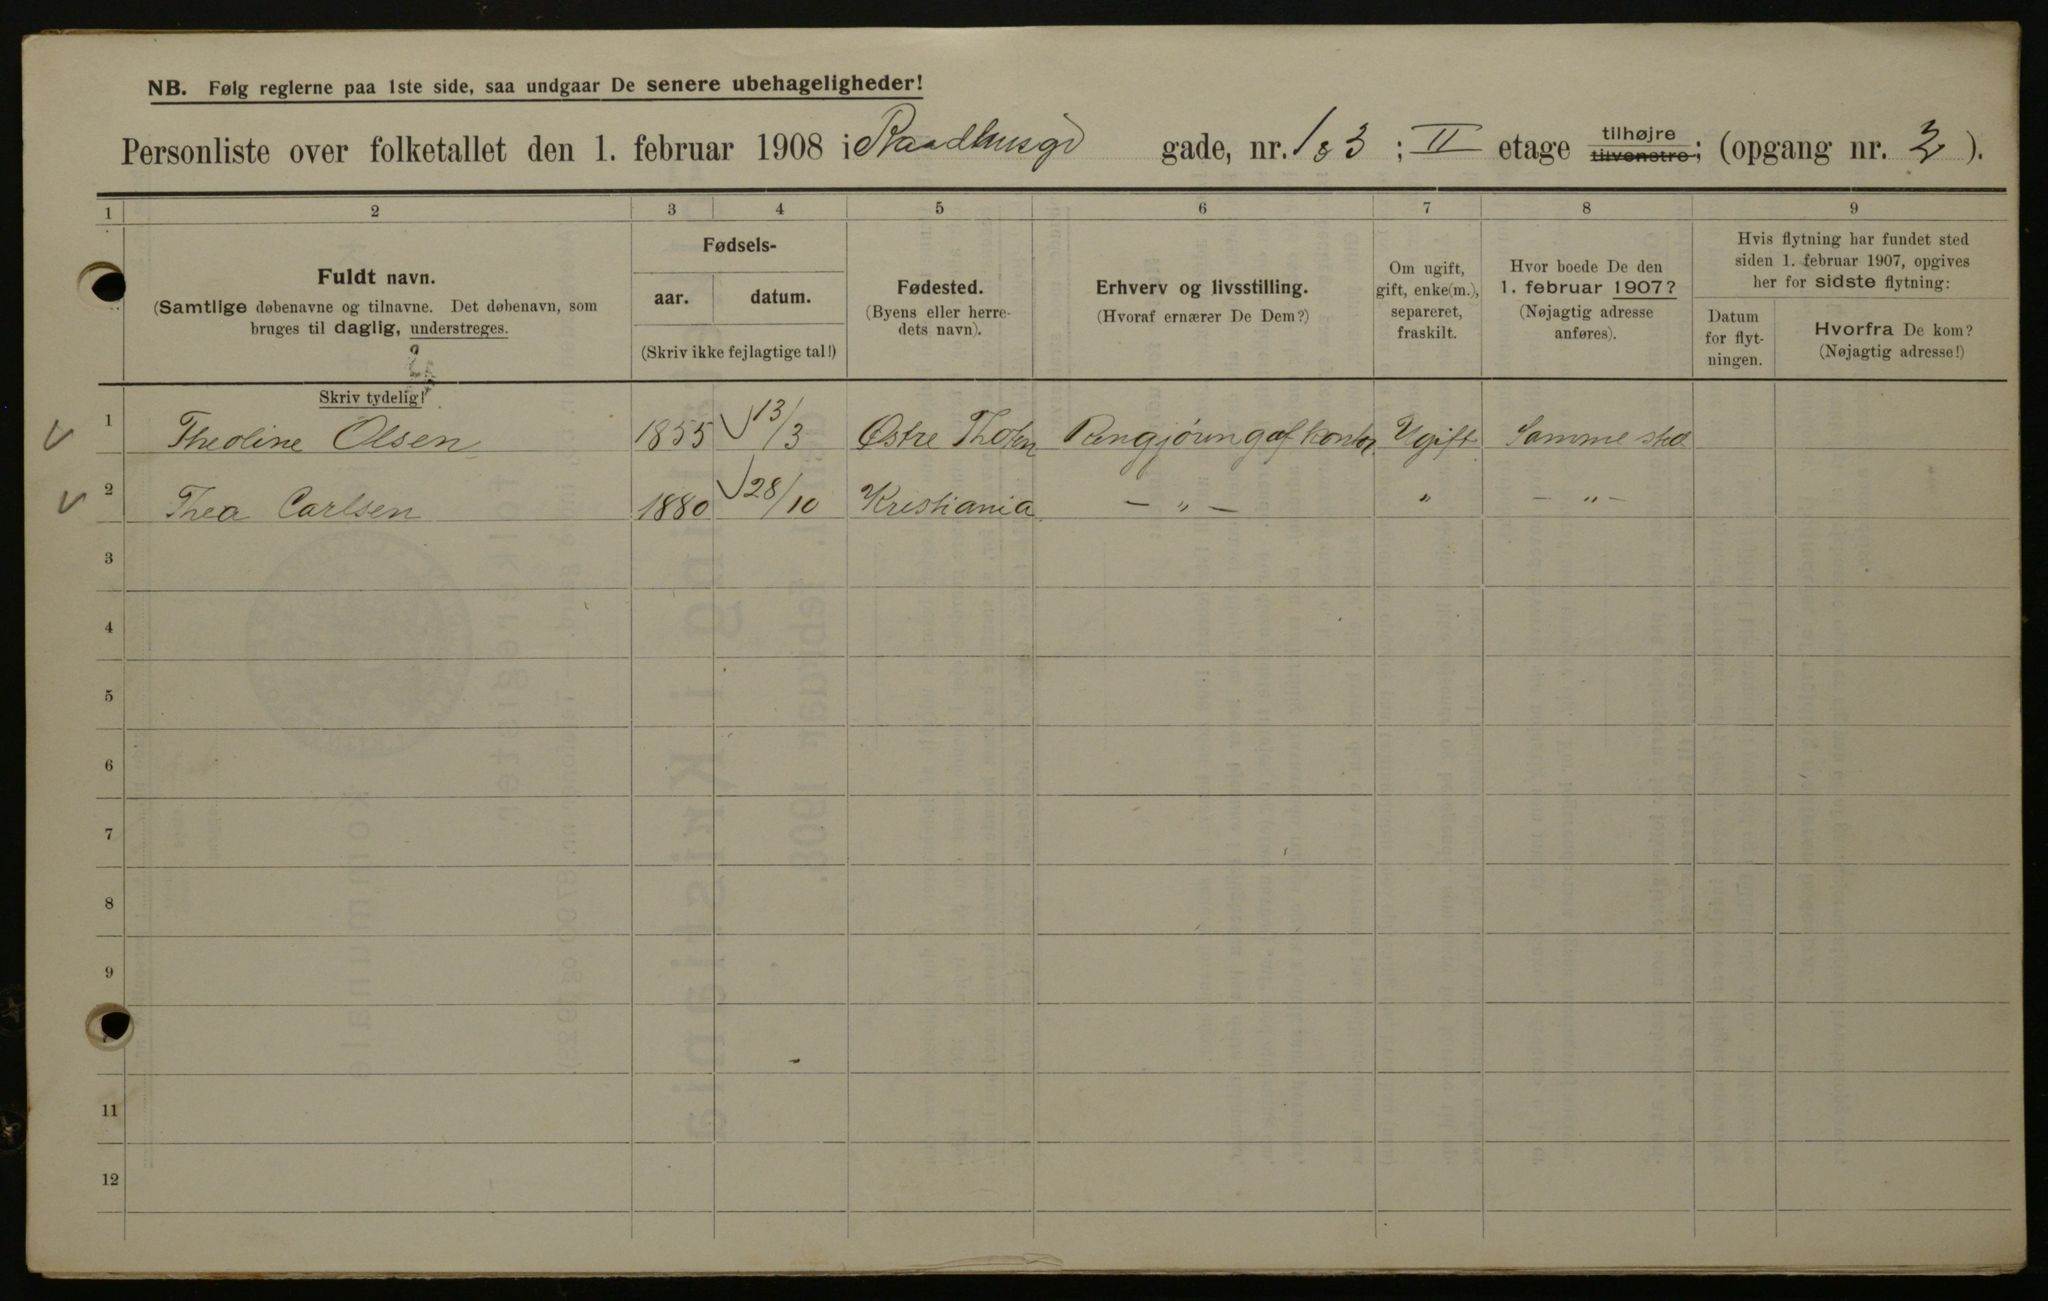 NB. Følg reglerne paa 1ste side, saa undgaar De senere ubehageligheder!
Personliste over folketallet den 1. februar 1908 i Raadhusgd gade, nr. 1 & 3 ; II etage tilhøjre tilvenstre; (opgang nr. 2 ).
1 2 3 4 5 6 7 8 9
Fuldt navn.
(Samtlige døbenavne og tilnavne. Det døbenavn, som
bruges til daglig, understreges.
Skriv tydelig!
Fødsels-
aar. datum.
(Skriv ikke fejlagtige tal!)
Fødested.
(Byens eller herre-
dets navn).
Erhverv og livsstilling.
(Hvoraf ernærer De Dem?)
Om ugift,
gift, enke(m.),
separeret,
fraskilt.
Hvor boede De den
1. februar 1907?
(Nøjagtig adresse
anføres).
Hvis flytning har fundet sted
siden 1. februar 1907, opgives
her for sidste flytning:
Datum
for flyt-
ningen.
Hvorfra De kom?
(Nøjagtig adresse!)
1 Theoline Olsen 1855 13/3 Østre Thoten Rengjøring af kontor Ugift Samme sted
2 Thea Carlsen 1880 28/10 Kristiania — „ — „ — „ —
3
4
5
6
7
8
9
11
12